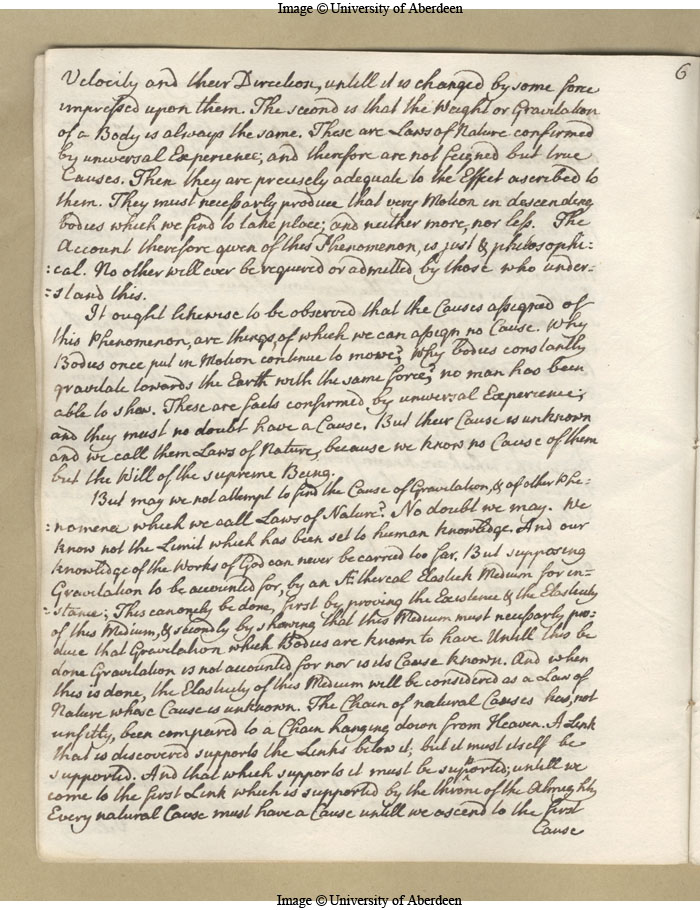 Image © University of Aberdeen
6
Velocity and their Direction, untill it is changed by some force
impressed upon them. The second is that the Weight or Gravitation
of a Body is always the same. These are Laws of Nature confirmed
by universal Experience, and therefore are not feigned but true
Causes. Then they are precisely adequate to the Effect ascribed to
them. They must necessarly produce that very Motion in descending
bodies which we find to take place; and neither more, nor less. The
Account therefore given of this Phenomenon, is just & philosophi-
:cal. No other will ever be required or admitted by those who under-
:stand this.
It ought likewise to be observed that the Causes assigned of
this Phenomenon, are things, of which we can assign no Cause. Why
Bodies once put in Motion continue to move? Why bodies constantly
gravitate towards the Earth with the same force? no man has been
able to shew. These are facts confirmed by universal Experience,
and they must no doubt have a Cause. But their Cause is unknown
and we call them Laws of Nature, because we know no Cause of them
but the Will of the supreme Being.
But may we not attempt to find the Cause of Gravitation, & of other Phe-
:nomena which we call Laws of Nature? No doubt we may. We
know not the Limit which has been set to human knowledge. And our
knowledge of the Works of God can never be carried too far. But supposing
Gravitation to be accounted for, by an Æthereal Elastick Medium for in-
:stance; This can onely be done, first by proving the Existence & the Elasticity
of this Medium, & secondly by shewing that this Medium must necessarly pro-
duce that Gravitation which Bodies are known to have Untill this be
done Gravitation is not accounted for nor is its Cause known. And when
this is done, the Elasticity of this Medium will be considered as a Law of
Nature whose Cause is unknown. The Chain of natural Causes has, not
unfitly, been compared to a Chain hanging down from Heaven. A Link
that is discovered supports the Links below it, but it must itself be
supported. And that which supports it must be supported, untill we
come to the first Link which is supported by the throne of the Almighty
Every natural Cause must have a Cause untill we ascend to the first
Cause
Image © University of Aberdeen